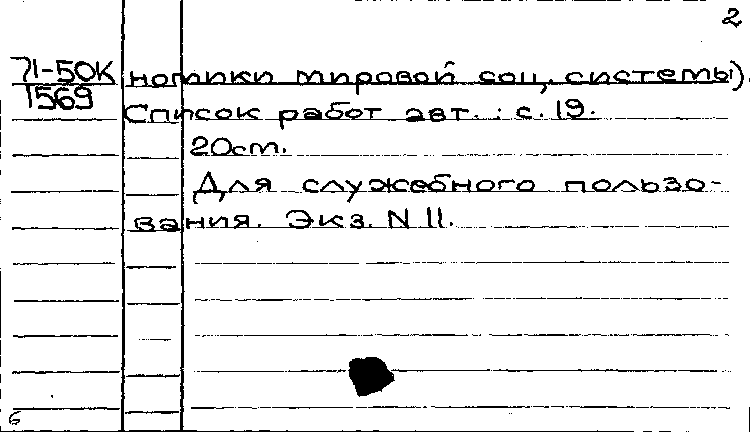 2
71-50К номики мировой соц. системы).
1569 Список работ авт.: с. 19.
20см.
Для служебного пользо-
вания. Экз. N 11.
6